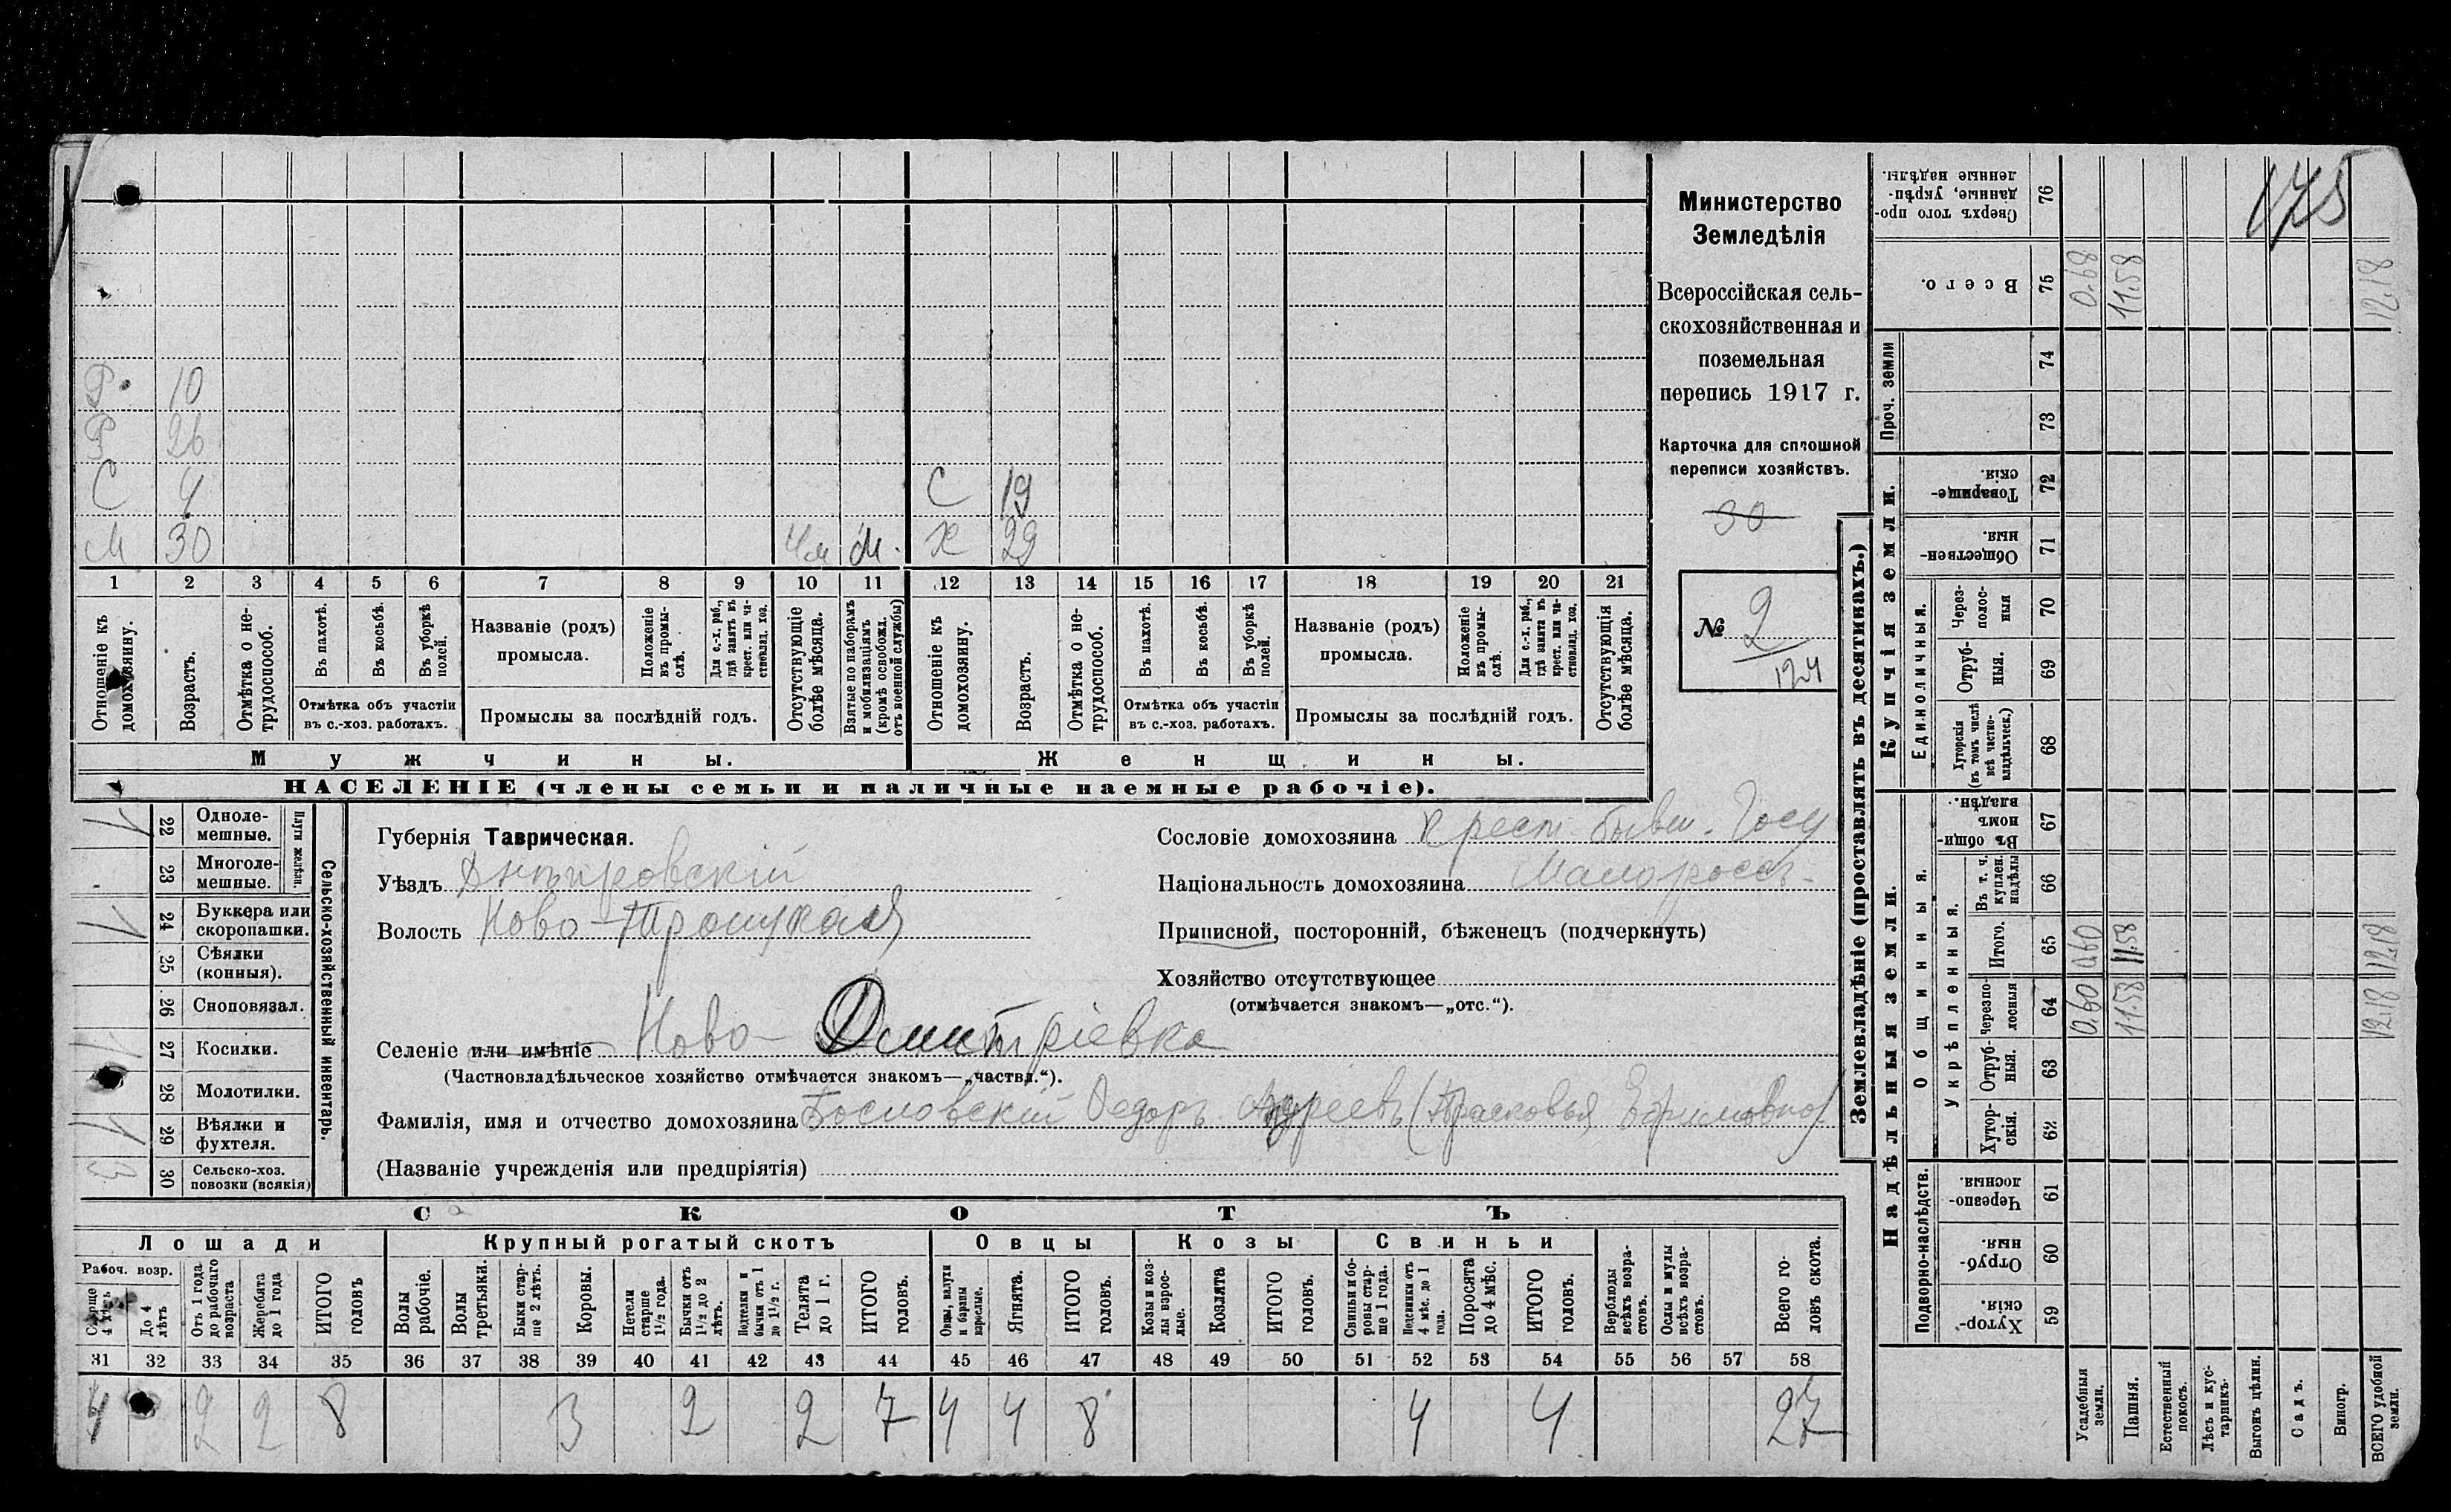 Министерство
Земледѣлія
Всероссійская сель-
скохозяйственная и
поземельная
перепись 1917 г.
Карточка для сплошной
переписи хозяйствъ.
30
№ 2
124
175
Р. 10
Р 26
С 4 С 19
М 30 4м М. Ж 29
1 2 3 4 5 6 7 8 9 10 11 12 13 14 15 16 17 18 19 20 21
Отношеніе къ домохозяину.
Возрастъ.
Отмѣтка о не-трудоспособ.
Въ пахотѣ.
Въ косьбѣ.
Въ уборкѣ полей.
Отмѣтка объ участіи
въ с.-хоз. работахъ.
Названіе (родъ)
промысла.
Положеніе въ промы-слѣ.
Для с.-х. раб., гдѣ занятъ въ крест. или ча-стновлад. хоз.
Промыслы за послѣдній годъ.
Отсутствующіе болѣе мѣсяца.
Взятые по наборамъ и мобилизаціямъ (кромѣ освобожд. отъ военной службы)
Отношеніе къ домохозяину.
Возрастъ.
Отмѣтка о не-трудоспособ.
Въ пахотѣ.
Въ косьбѣ.
Въ уборкѣ полей.
Отмѣтка объ участіи
въ с.-хоз. работахъ.
Названіе (родъ)
промысла.
Положеніе въ промы-слѣ.
Для с.-х. раб., гдѣ занята въ крест. или ча-стновлад. хоз.
Промыслы за послѣдній годъ.
Отсутствующія болѣе мѣсяца.
Мужчины. Женщины.
НАСЕЛЕНІЕ (члены семьи и наличные наемные рабочіе).
Сельско-хозяйственный инвентарь.
Плуги желѣзн.
1 22 Однолемешные.
23 Многолемешные.
1 24 Буккера или скоропашки.
25 Сѣялки (конныя).
26 Сноповязал.
1 27 Косилки.
28 Молотилки.
1 29 Вѣялки и фухтеля.
3 30 Сельско-хоз. повозки (всякія)
Губернія Таврическая.
Уѣздъ Днѣпровскій
Волость Ново-Троицкая
Сословіе домохозяина Крест. бывш. Госу
Національность домохозяина Малоросс.
Приписной, посторонній, бѣженецъ (подчеркнуть)
Хозяйство отсутствующее
(отмѣчается знакомъ—„отс.“).
Селеніе или имѣніе Ново-Дмитріевка
(Частновладѣльческое хозяйство отмѣчается знакомъ—„частвл.“).
Фамилія, имя и отчество домохозяина Бословскій Федоръ Андреевъ (Прасковья Ефимовна)
(Названіе учрежденія или предпріятія)
СКОТЪ
Лошади Крупный рогатый скотъ Овцы Козы Свиньи
Рабоч. возр.
Старше 4 лѣтъ
До 4 лѣтъ
Отъ 1 года до рабочаго возраста
Жеребята до 1 года
ИТОГО головъ
Волы рабочіе.
Волы третьяки.
Быки стар-ше 2 лѣтъ.
Коровы.
Нетели старше 1½ года.
Бычки отъ 1½ до 2 лѣтъ.
Подтелки и бычки отъ 1 до 1½ г.
Телята до 1 г.
ИТОГО головъ.
Овцы, валухи и бараны взрослые.
Ягнята.
ИТОГО головъ.
Козы и коз-лы взрос-лые.
Козлята
ИТОГО головъ.
Свиньи и бо-ровы стар-ше 1 года.
Подсвинки отъ 4 мѣс. до 1 года.
Поросята до 4 мѣс.
ИТОГО головъ.
Верблюды всѣхъ возра-стовъ.
Ослы и мулы всѣхъ возра-стовъ.
Всего го-ловъ скота.
31 32 33 34 35 36 37 38 39 40 41 42 43 44 45 46 47 48 49 50 51 52 53 54 55 56 57 58
4 2 2 8 3 2 2 7 4 4 8 4 4 27
Землевладѣніе (проставлять въ десятинахъ.)
Надѣльныя земли. Купчія земли. Проч. земли
Подворно-наслѣдств.
Общинныя.
Укрѣпленныя.
Единоличныя.
59 Хутор-скія.
60 Отруб-ныя.
61 Черезпо-лосныя.
62 Хутор-скія.
63 Отруб-ныя.
64 Черезпо-лосныя 0.60 11.58 12.18
65 Итого. 0.60 11.58 12.18
66 Въ т. ч. куплен. надѣлы
67 Въ общин-номъ владѣн.
68 Хуторскія (въ томъ числѣ всѣ частно-владѣльческ.)
69 Отруб-ныя.
70 Через-полос-ныя
71 Обществен-ныя
72 Товарище-скія.
73
74
75 Всего. 0.68 11.58 12.18
76 Сверхъ того про-данные, укрѣп-ленные надѣлы.
Усадебныя земли.
Пашня.
Естественный покосъ.
Лѣсъ и кус-тарникъ.
Выгонъ цѣлин.
Садъ.
Виногр.
ВСЕГО удобной земли.